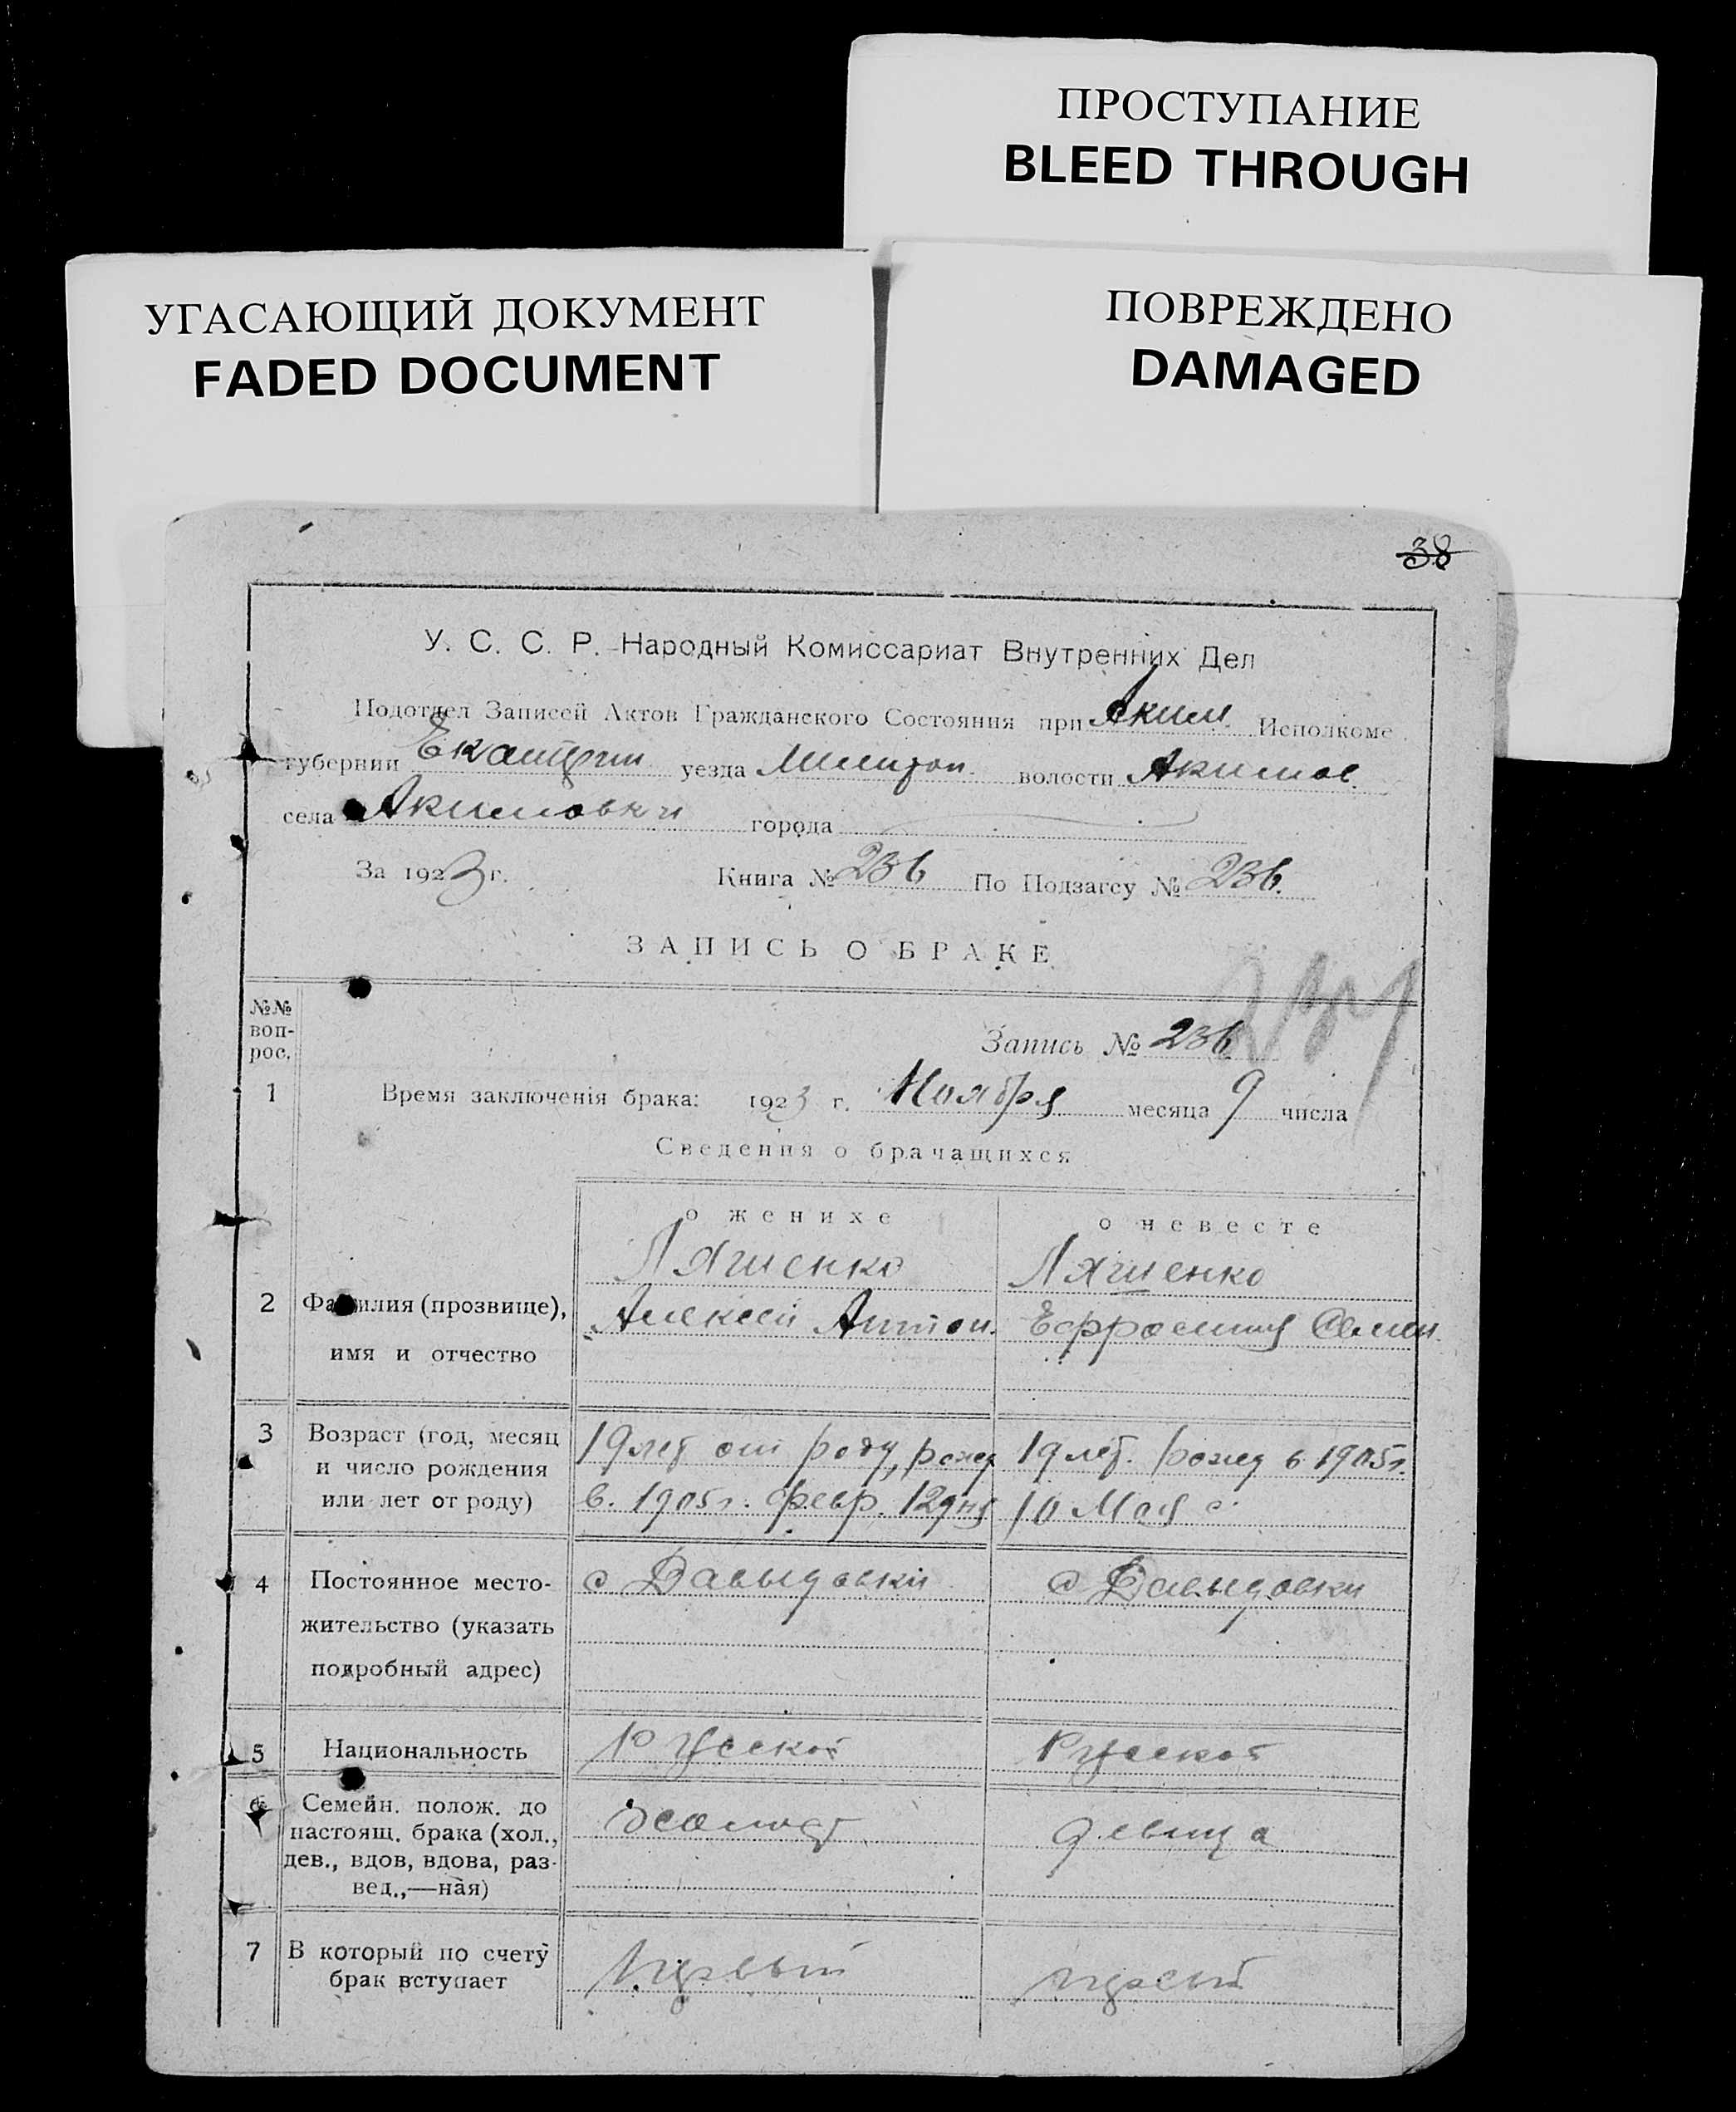 ПРОСТУПАНИЕ
BLEED THROUGH
УГАСАЮЩИЙ ДОКУМЕНТ
FADED DOCUMENT
ПОВРЕЖДЕНО
DAMAGED
38
У. С. С. Р. Народный Комиссариат Внутренних Дел
Подотдел Записей Актов Гражданского Состояния при Аким. Исполкоме
губернии Екатерин уезда Мелитоп. волости Акимов.
села Акимовки города
За 1923 г. Книга № 236 По Подзагсу № 236.
ЗАПИСЬ О БРАКЕ
№№ воп- рос.
Запись № 236
1 Время заключенія брака: 1923 г. Ноября месяца 9 числа
Сведения о брачащихся
о женихе о невесте
Ляшенко Ляшенко
2 Фамилия (прозвище), Алексей Антон. Ефросиния Семен.
имя и отчество
3 Возраст (год, месяц 19 лет от роду, рожд 19 лет. рожд в 1905 г.
и число рождения
или лет от роду) в. 1905 г. февр. 12 дня 10 Мая
4 Постоянное место- с Давыдовки с Давыдовки
жительство (указать
подробный адрес)
5 Национальность Руской Руской
6 Семейн. полож. до холост девица
настоящ. брака (хол.,
дев., вдов, вдова, раз-
вед.,—ная)
7 В который по счету первый первый
брак вступает